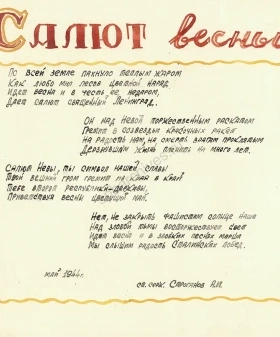 Салют весны
По всей земле пахнуло теплым жаром
Как любо мил лесов цветной наряд
Идет весна и в честь ее, недаром,
Дает салют священный Ленинград.
Он над Невой торжественным раскатом
Гремит в созвездьи красочных ракет
На радость нам, на смерть врагам проклятым
Дерзнувшим жизнь на много лет.
Салют Невы, ты символ нашей славы
Твой вешний гром гремит из края в край
Тебе вторят республики-державы,
Приветствуя весны цветущий май.
Нет, не закрыть фашистам солнце наше
Над злобой тьмы восторжествовал свет
Идет весна и в звонких песнях марша
Мы слышим радость Сталинских побед.
май 1944г.
гв. серж. Строганов А.М.